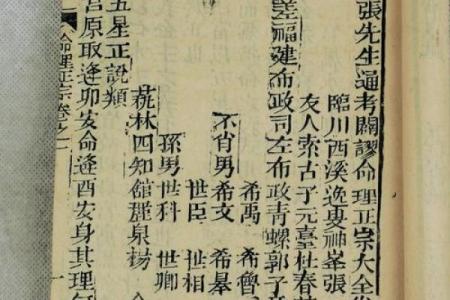 張先生通考闢謬命理正宗大全
臨川西溪逸叟神峯張
友人索古子元臺杜春
差福建布政司左布政青螺郭子
希禹 希魯
不肖男希文 希皋
世臣 世相
孫男世科 世卿
蓺林四知館麗泉楊
五星正說類
宮原取逢卯安命逢酉安身其理
命理正宗卷之一